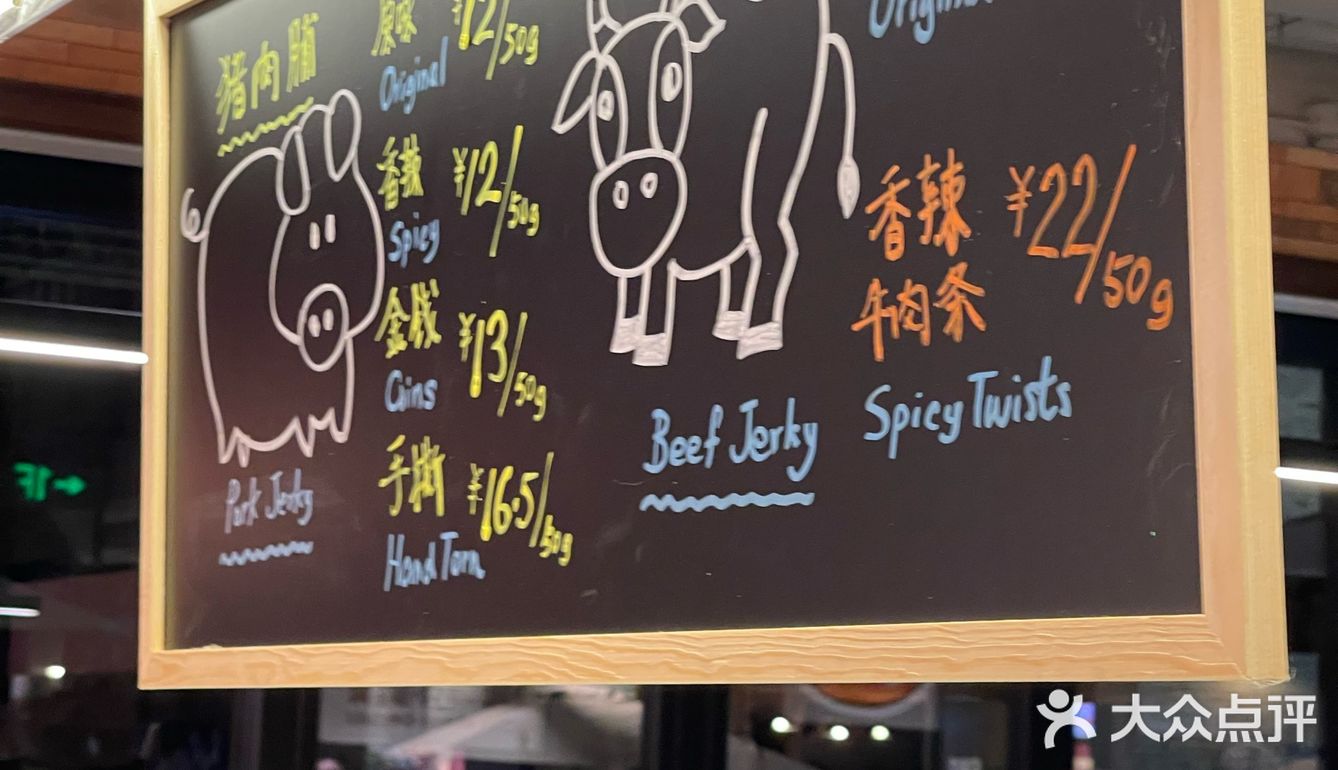 猪肉脯
原味 ¥12/50g
Original
香辣 ¥12/50g
Spicy
金钱 ¥13/50g
Coins
手撕 ¥16.5/50g
Hand Torn
Pork Jerky
Original
香辣 ¥22/50g
牛肉条
Spicy Twists
Beef Jerky
大众点评